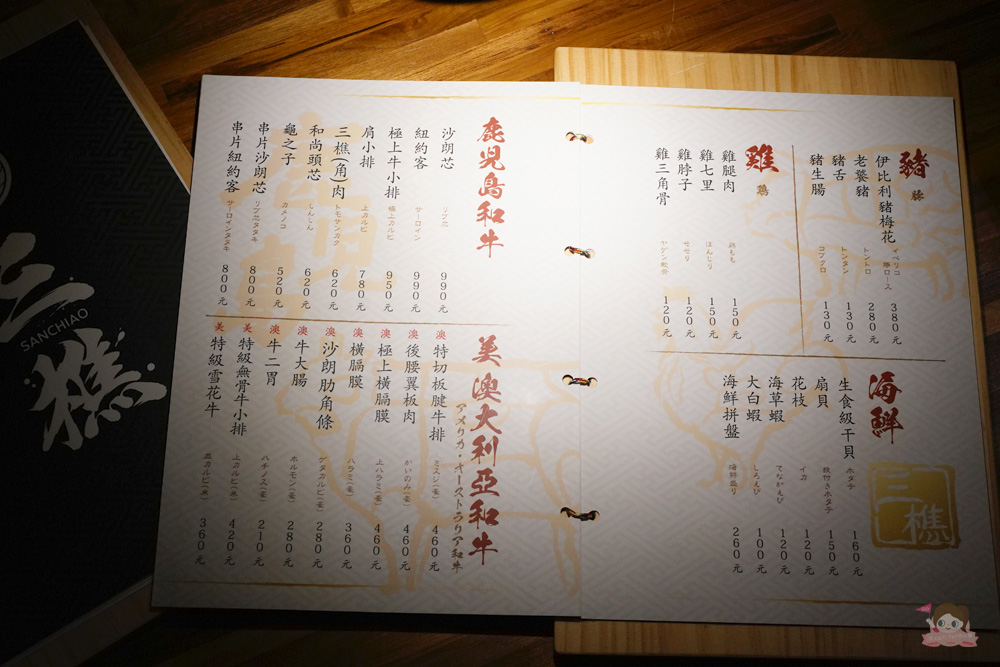 豬
豚
伊比利豬梅花 イベリコ 豚ロース 380元
老饕豬 トントロ 280元
豬舌 トンタン 130元
豬生腸 コブクロ 130元
雞
鶏
雞腿肉 鶏もも 150元
雞七里 ぼんじり 150元
雞脖子 せせり 120元
雞三角骨 ヤゲン軟骨 120元
海鮮
生食級干貝 ホタテ 160元
扇貝 殻付きホタテ 150元
花枝 イカ 120元
海草蝦 てながえび 120元
大白蝦 しろえび 100元
海鮮拼盤 海鮮盛り 260元
三樵
鹿児島和牛
沙朗芯 リブ芯 990元
紐約客 サーロイン 990元
極上牛小排 極上カルビ 950元
肩小排 上カルビ 780元
三樵(角)肉 トモサンカク 620元
和尚頭芯 しんしん 620元
龜之子 カメノコ 520元
串片沙朗芯 リブ芯タタキ 800元
串片紐約客 サーロインタタキ 800元
美澳大利亞和牛
アメリカ・オーストラリア和牛
澳 特切板腱牛排 ミスジ(豪) 460元
澳 後腰翼板肉 かいのみ(豪) 460元
澳 極上橫膈膜 上ハラミ(豪) 460元
澳 橫膈膜 ハラミ(豪) 360元
澳 沙朗肋角條 ゲタカルビ(豪) 280元
澳 牛大腸 ホルモン(豪) 280元
澳 牛二胃 ハチノス(豪) 210元
美 特級無骨牛小排 上カルビ(米) 420元
美 特級雪花牛 並カルビ(米) 360元
三樵
SANCHIAO